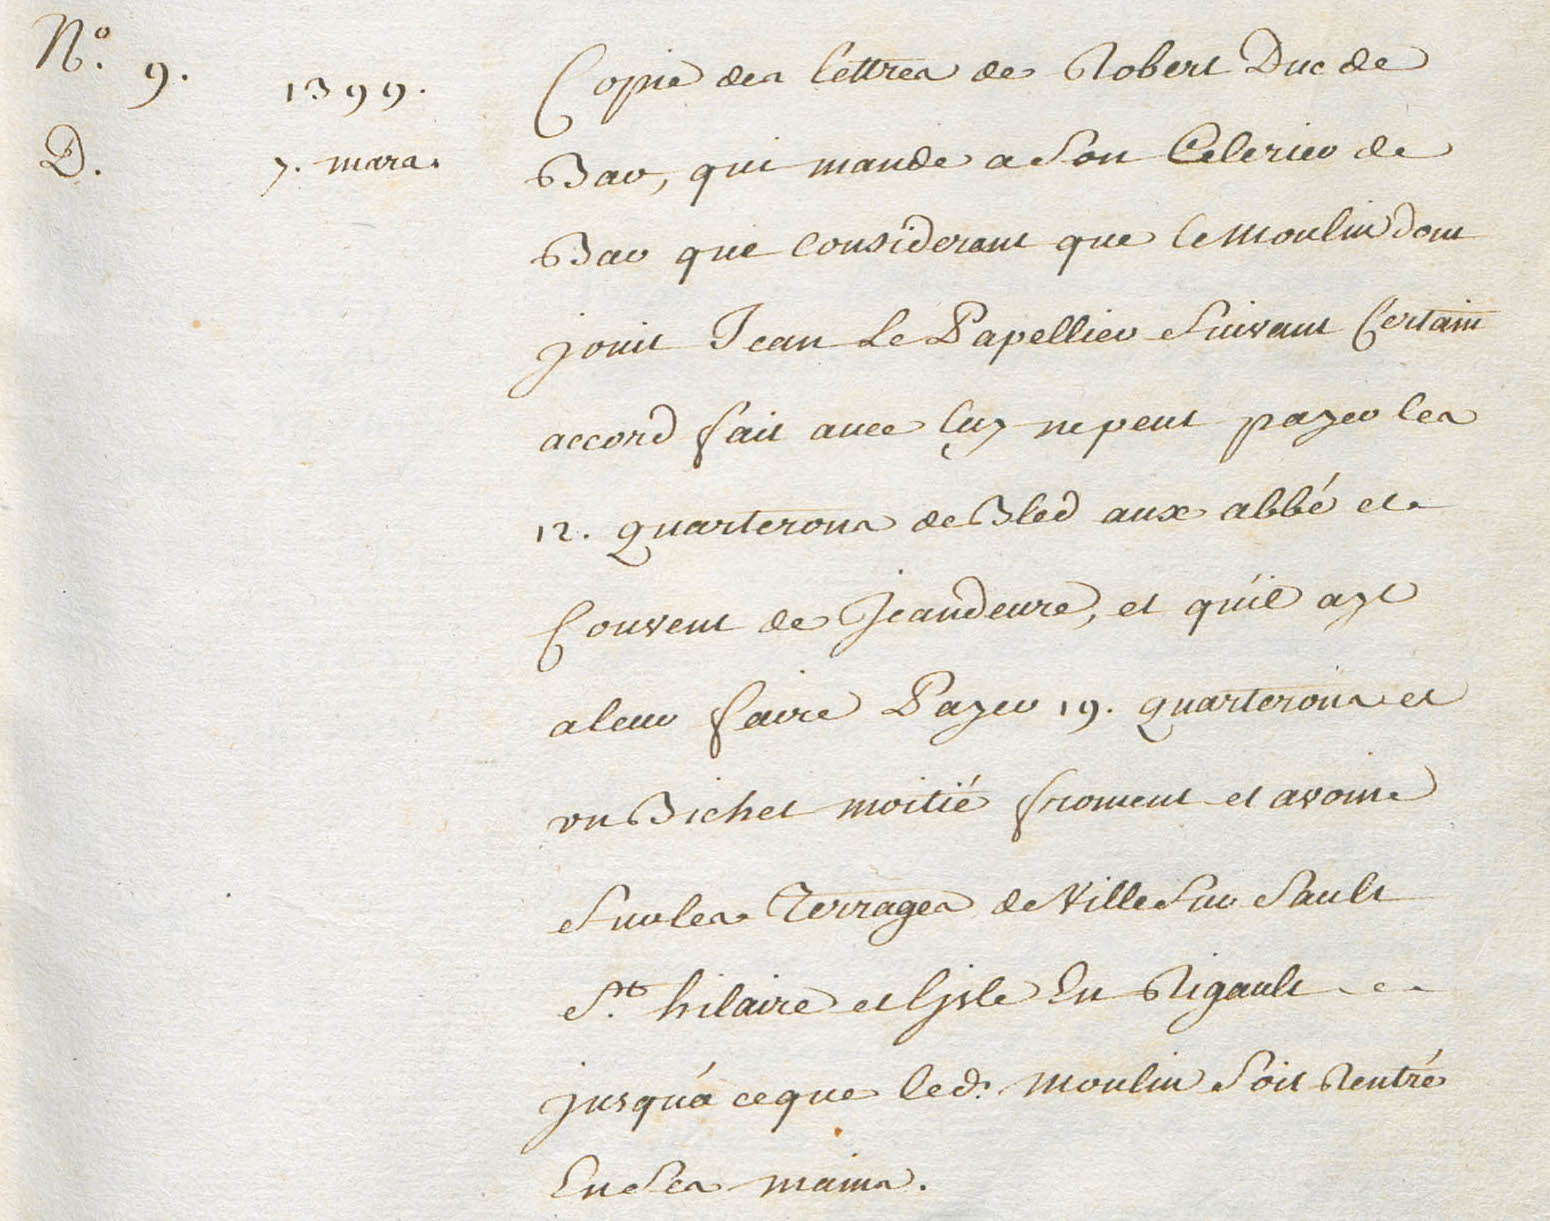 N.o 9.
D.
1399.
7. mars.
Copie des lettres de Robert Duc de
Bar, qui mande a Son Celerier de
Bar que considerant que le Moulin dont
jouit Jean Le Papellier Suivant Certain
accord fait avec luy ne peut payer les
12. quarterons de Bled aux abbé et
Couvent de Jeandeure, et qu'il ayt
a leur faire Payer 19. quarterons et
vn Bichet moitié froment et avoine
Sur les Terrages de Ville Sur Sault
St. hilaire et lisle En Rigault
jusqu'á ce que led. Moulin Soit Rentré
En Ses mains.